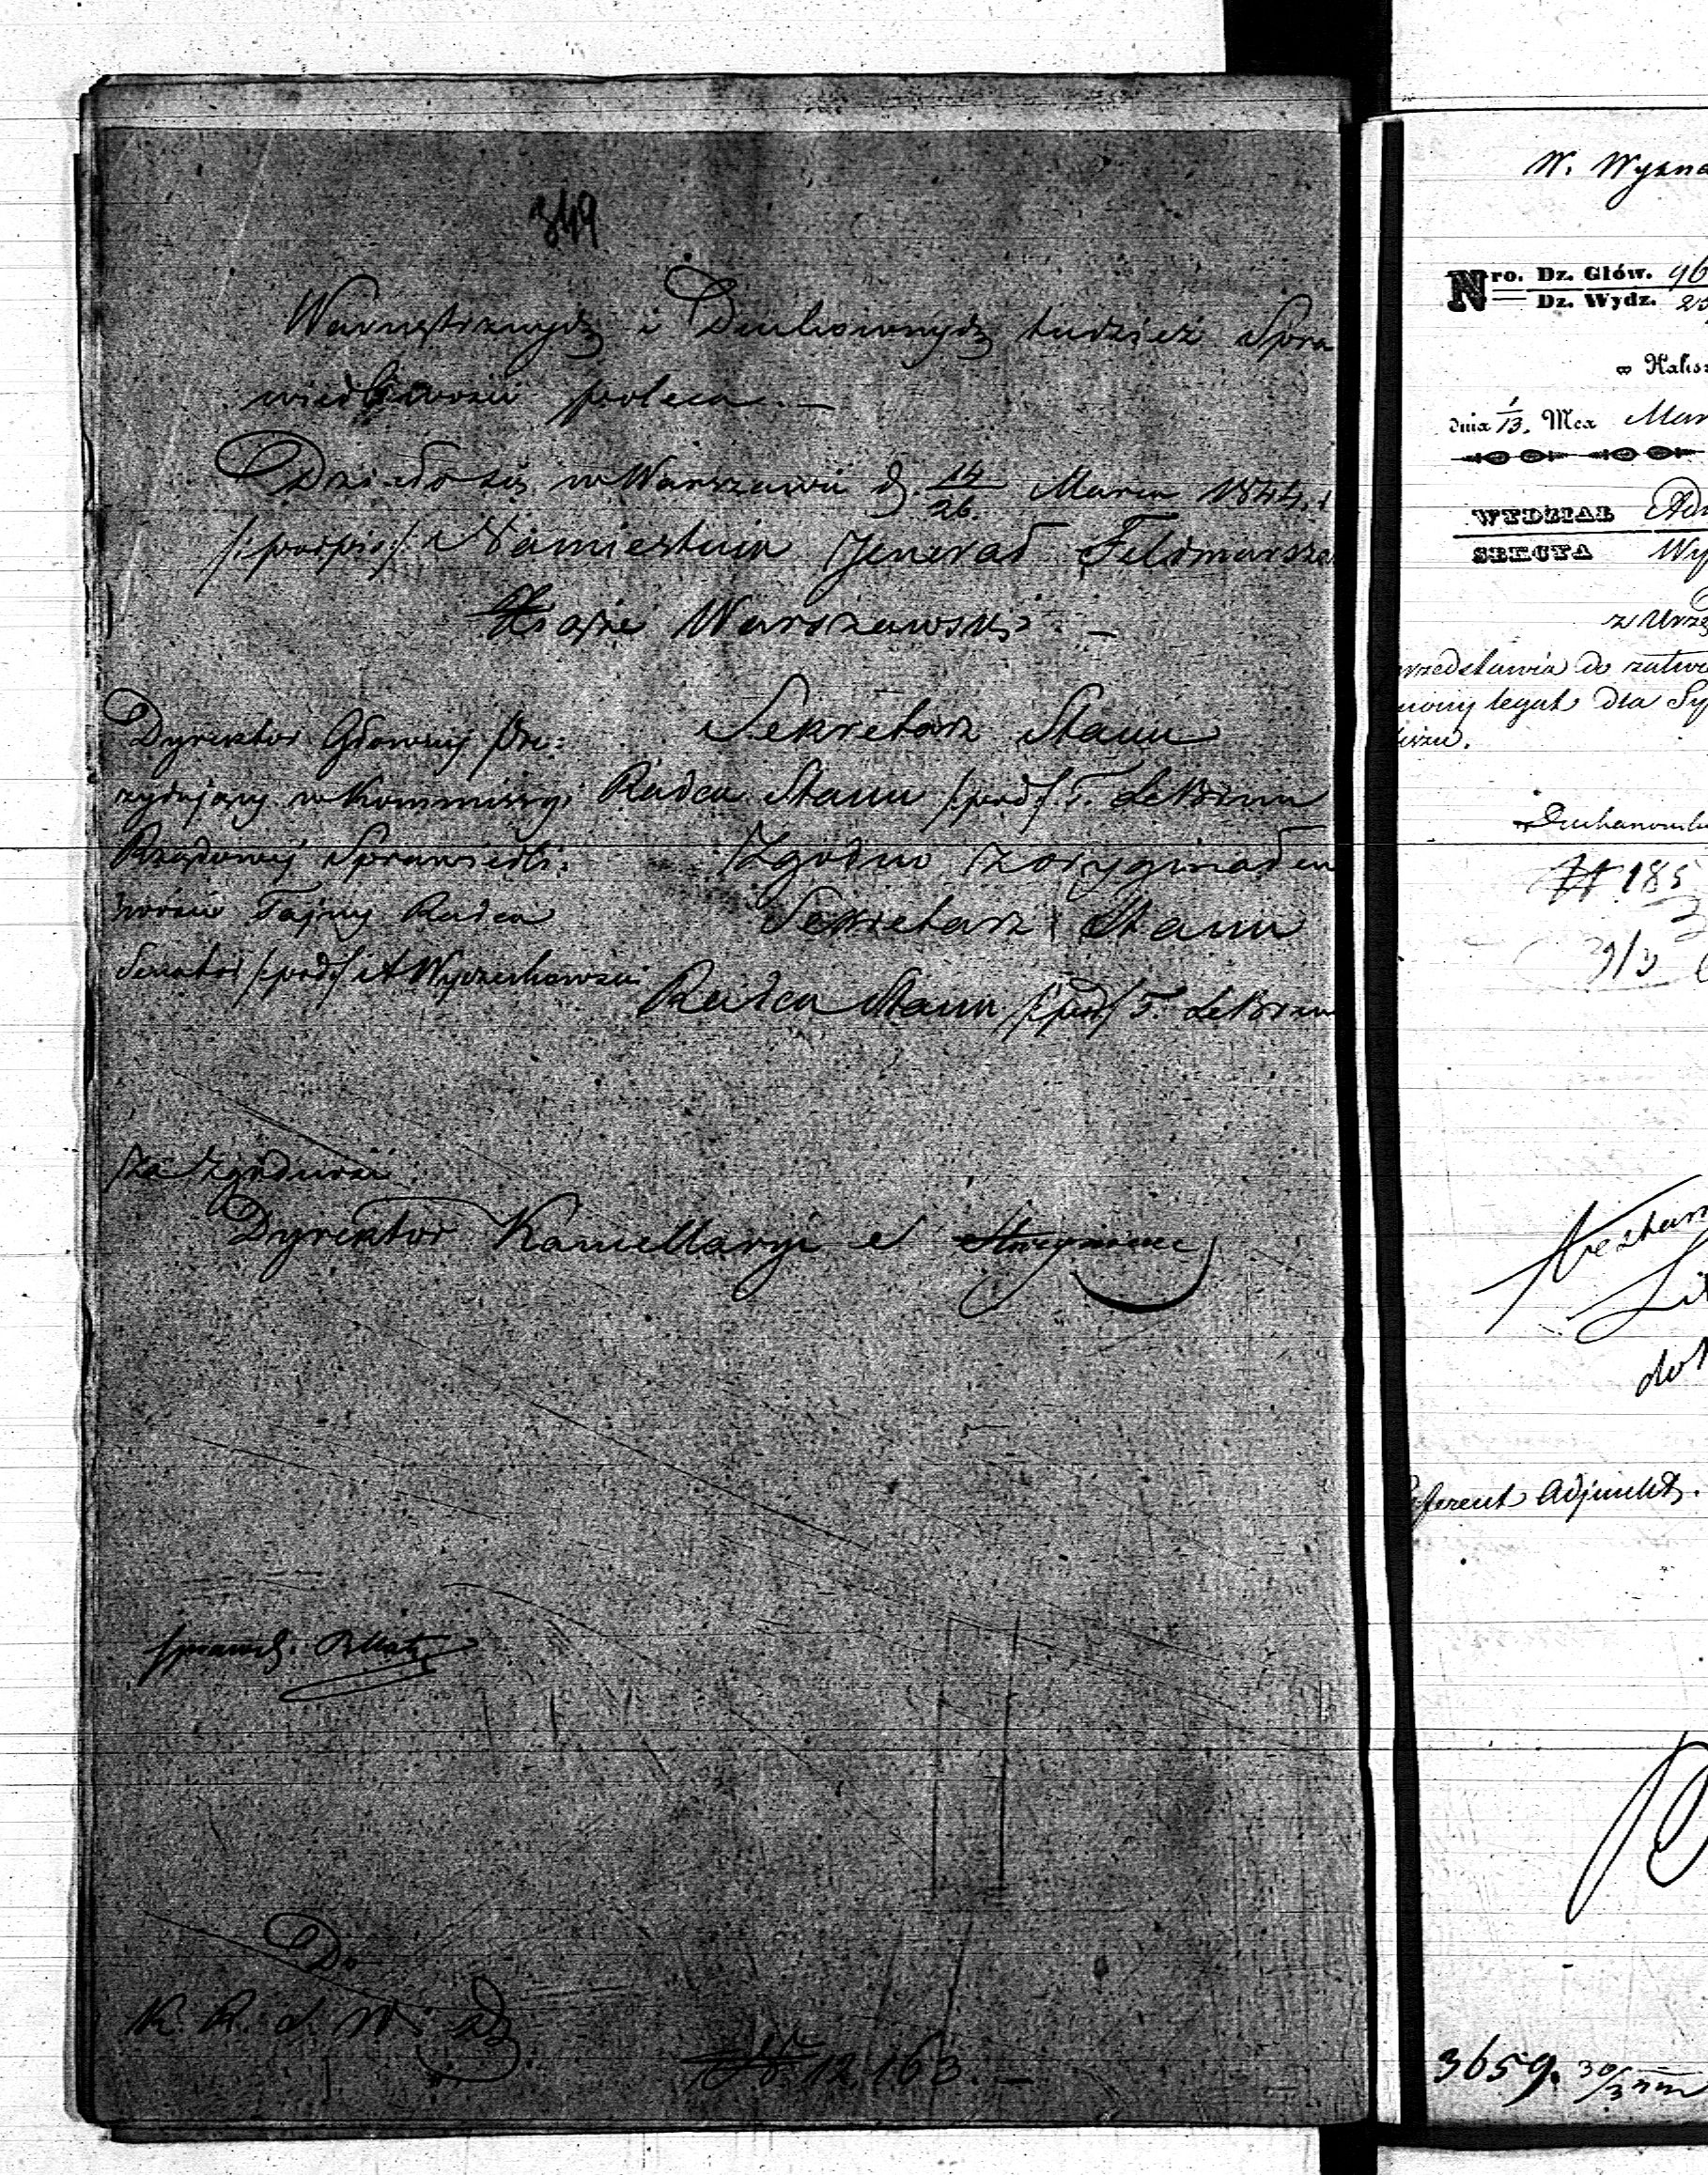 349
Wewnętrznych i Duchownych tudzież Spra
wiedliwości poleca. —
Działo się w Warszawie d. 14/26. Marca 1844. r
/:podpis:/ Namiestnik Jenerał Feldmarsza
Xiąże Warszawski. —
Dyrektor Główny Pre:
zydujący w Kommissyi
Rządowej Sprawiedli:
wości Tajny Radca
Senator /:pod:/ A Wyczechowski
Sekretarz Stanu
Radca Stanu /:pod:/ T. Le Brun
Zgodno z oryginałem
Sekretarz Stanu
Radca Stanu /:pod:/ T. Le Brun
Za zgodność
Dyrektor Kancellaryi
Sprawdz.
Do
K. R. S. W. i D.
N 12,163. —
W. Wyzna
Nro. Dz. Głów. 96
Dz. Wydz. 25
w Kalisz
dnia 1/13. Mca Mar
WYDZIAŁ Ad
SEKCYA Wy
z Urzę
rzedstawia do zatwi
iony legat dla Sy
iszu.
N 185
3659. 30/3
Referent Adjunkt.